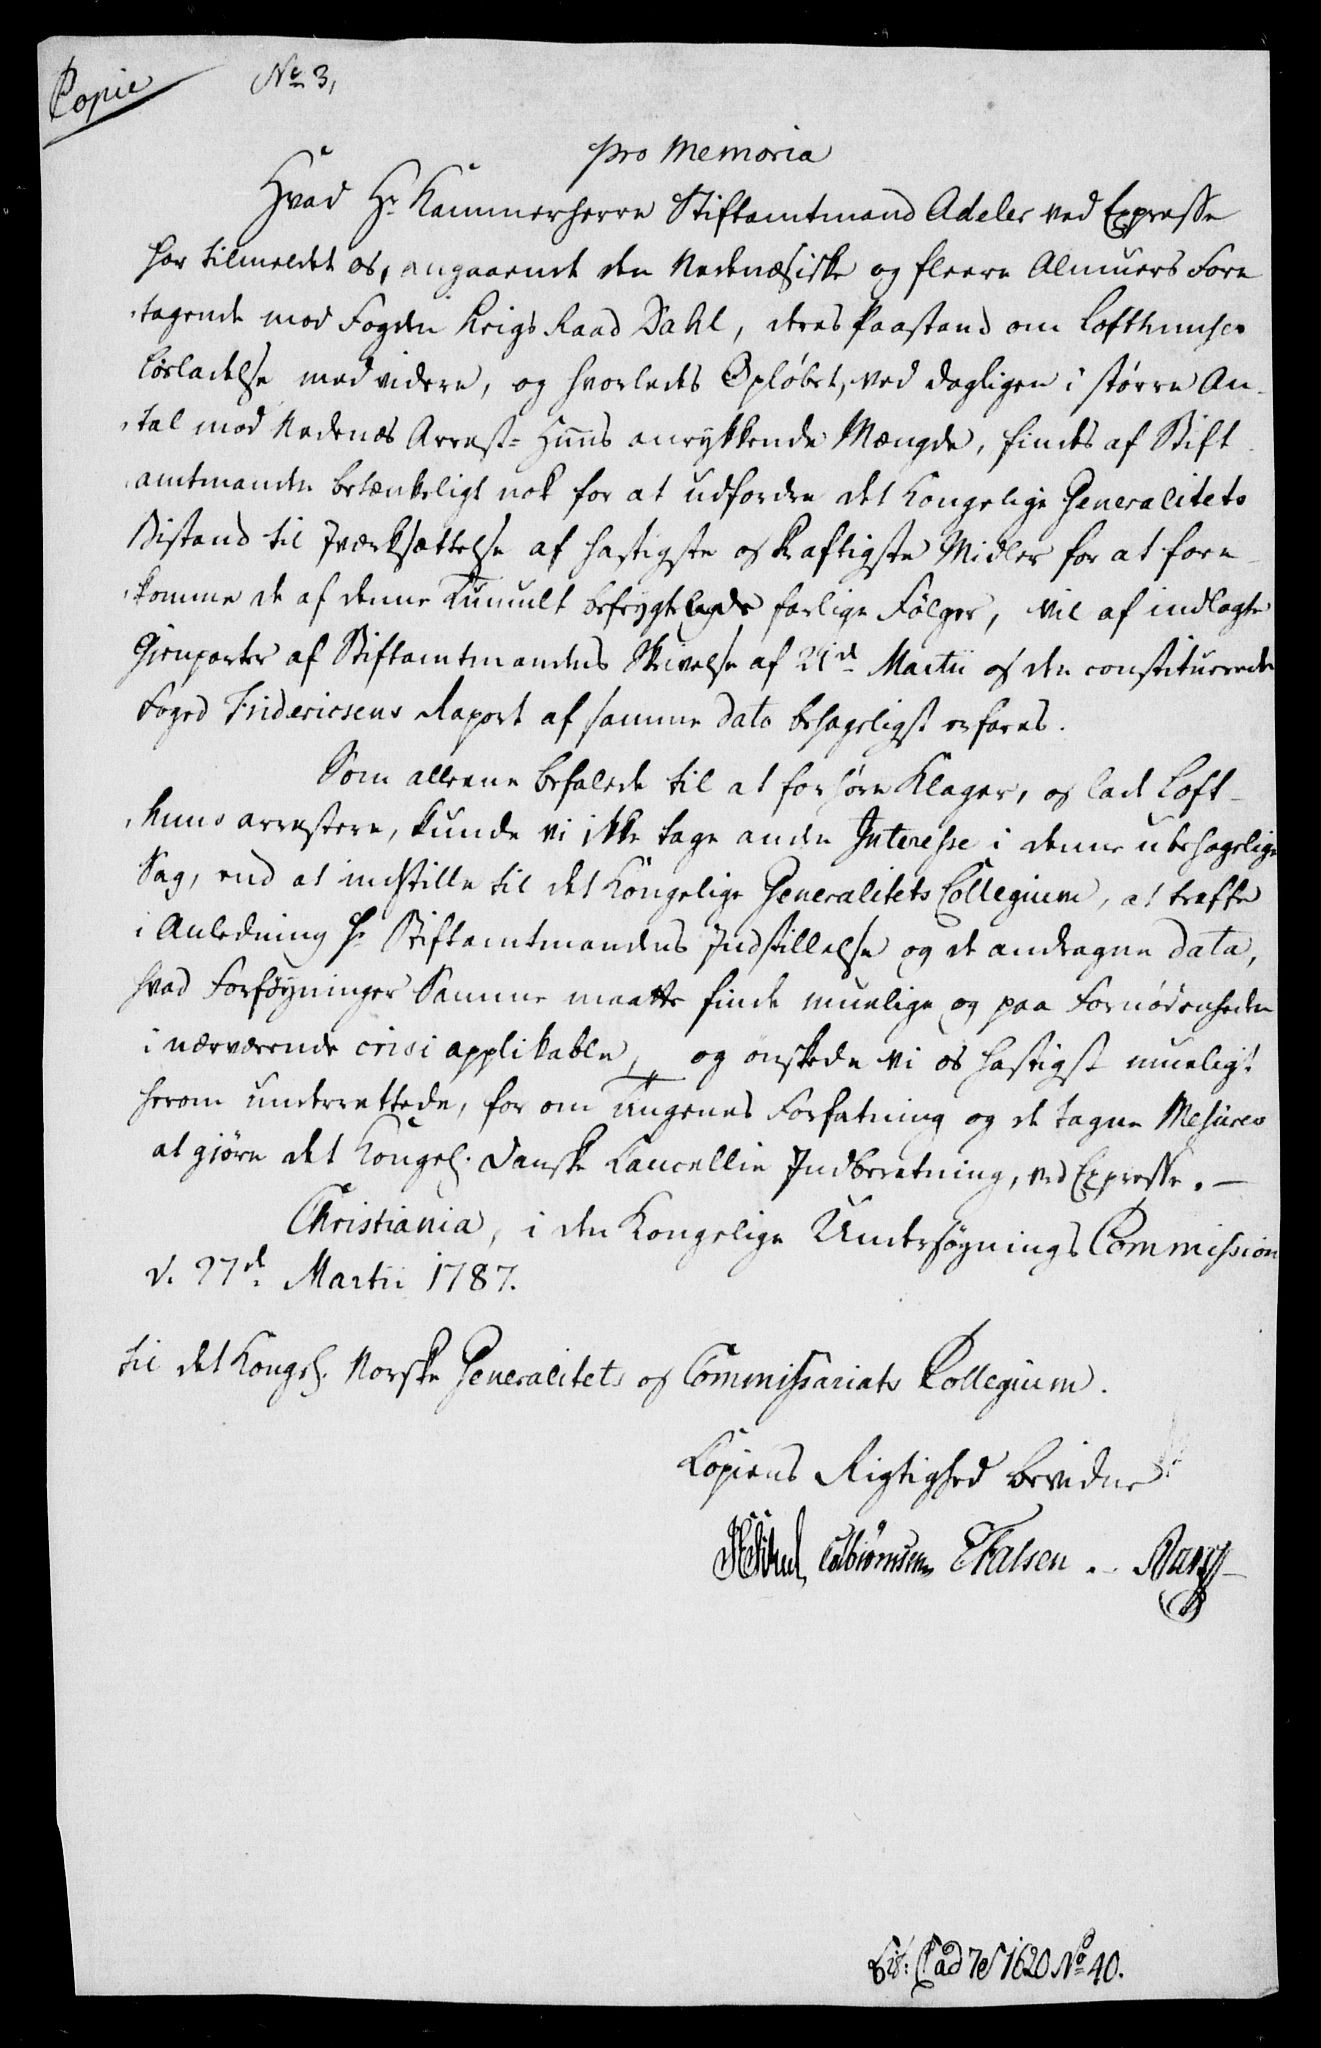 Copie
No 3,
pro Memoria
Hvad Hr Kammerherre Stiftamtmand Adeler ved Expresse
har tilmeldet os, angaaende den Nedenæsiske og fleere Almuers Fore
tagende mod Fogden Krigs Raad Dahl, deres Paastand om Lofthuuses
Løsladelse med videre, og hvorledes Opløbet, ved dagligen i større An-
tal mod Nedenæs Arrest-Huus anrykkende Mængde, findes af Stift
amtmanden betænkeligt nok for at udfordre det Kongelige Generalitets
Bistand til Iværksættelse af hastigste og kraftigste Midler for at fore-
komme de af denne Tumult befrygtelige farlige Følger, vil af indlagte
Gienparter af Stiftamtmandens Skrivelse af 21d Martii og den constituerede
Foged Fridericsens Raport af samme dato behageligst erfares.
Som alleene befalede til at forhøre Klager, og lade Loft-
huus arrestere, kunde vi ikke tage anden Interesse i denne ubehagelige
Sag, end at indstille til det Kongelige Generalitets Collegium, at træffe
i Anledning Hr Stiftamtmandens Indstillelse og de andragne data,
hvad Forføyninger Samme maatte finde muelige og paa Fornødenheden
i nærværende crisi applikable, og ønskede vi os hastigst mueligt
herom underrettede, for om Tingenes Forfatning og de tagne Mesures
at giøre det Kongel. Danske Cancellie Indberetning, ved Expresse. -
Christiania, i den Kongelige Undersøgnings Commission
d. 27d Martii 1787.
Til det Kongel. Norske Generalitets og Commissariats Collegium.
Copiens Rigtighed bevidne
Colbiørnsen EFalsen
ad 1620 No 40.